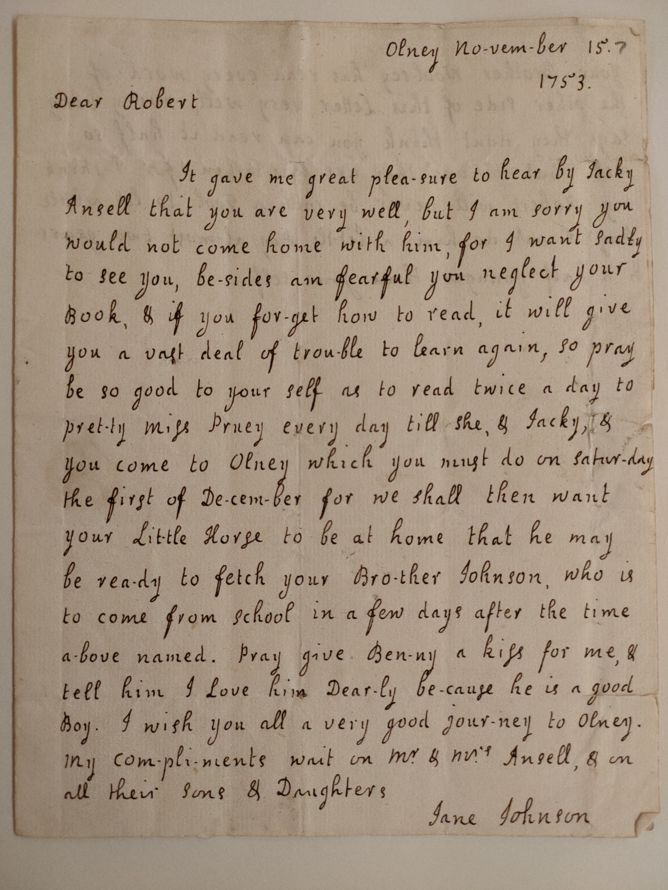 Olney No-vem-ber 15.
1753.
Dear Robert
It gave me great plea-sure to hear by Jacky
Ansell that you are very well, but I am sorry you
would not come home with him, for I want sadly
to see you, be-sides am fearful you neglect your
Book, & if you for-get how to read, it will give
you a vast deal of trou-ble to learn again, so pray
be so good to your self as to read twice a day to
pret-ty miss Pruey every day till she, & Jacky, &
you come to Olney which you must do on satur-day
the first of De-cem-ber for we shall then want
your Lit-tle Horse to be at home that he may
be rea-dy to fetch your Bro-ther Johnson, who is
to come from school in a few days after the time
a-bove named. Pray give Ben-ny a kiss for me, &
tell him I Love him Dear-ly be-cause he is a good
Boy. I wish you all a very good jour-ney to Olney.
My com-pli-ments wait on Mr & Mrs Ansell, & on
all their Sons & Daughters
Jane Johnson